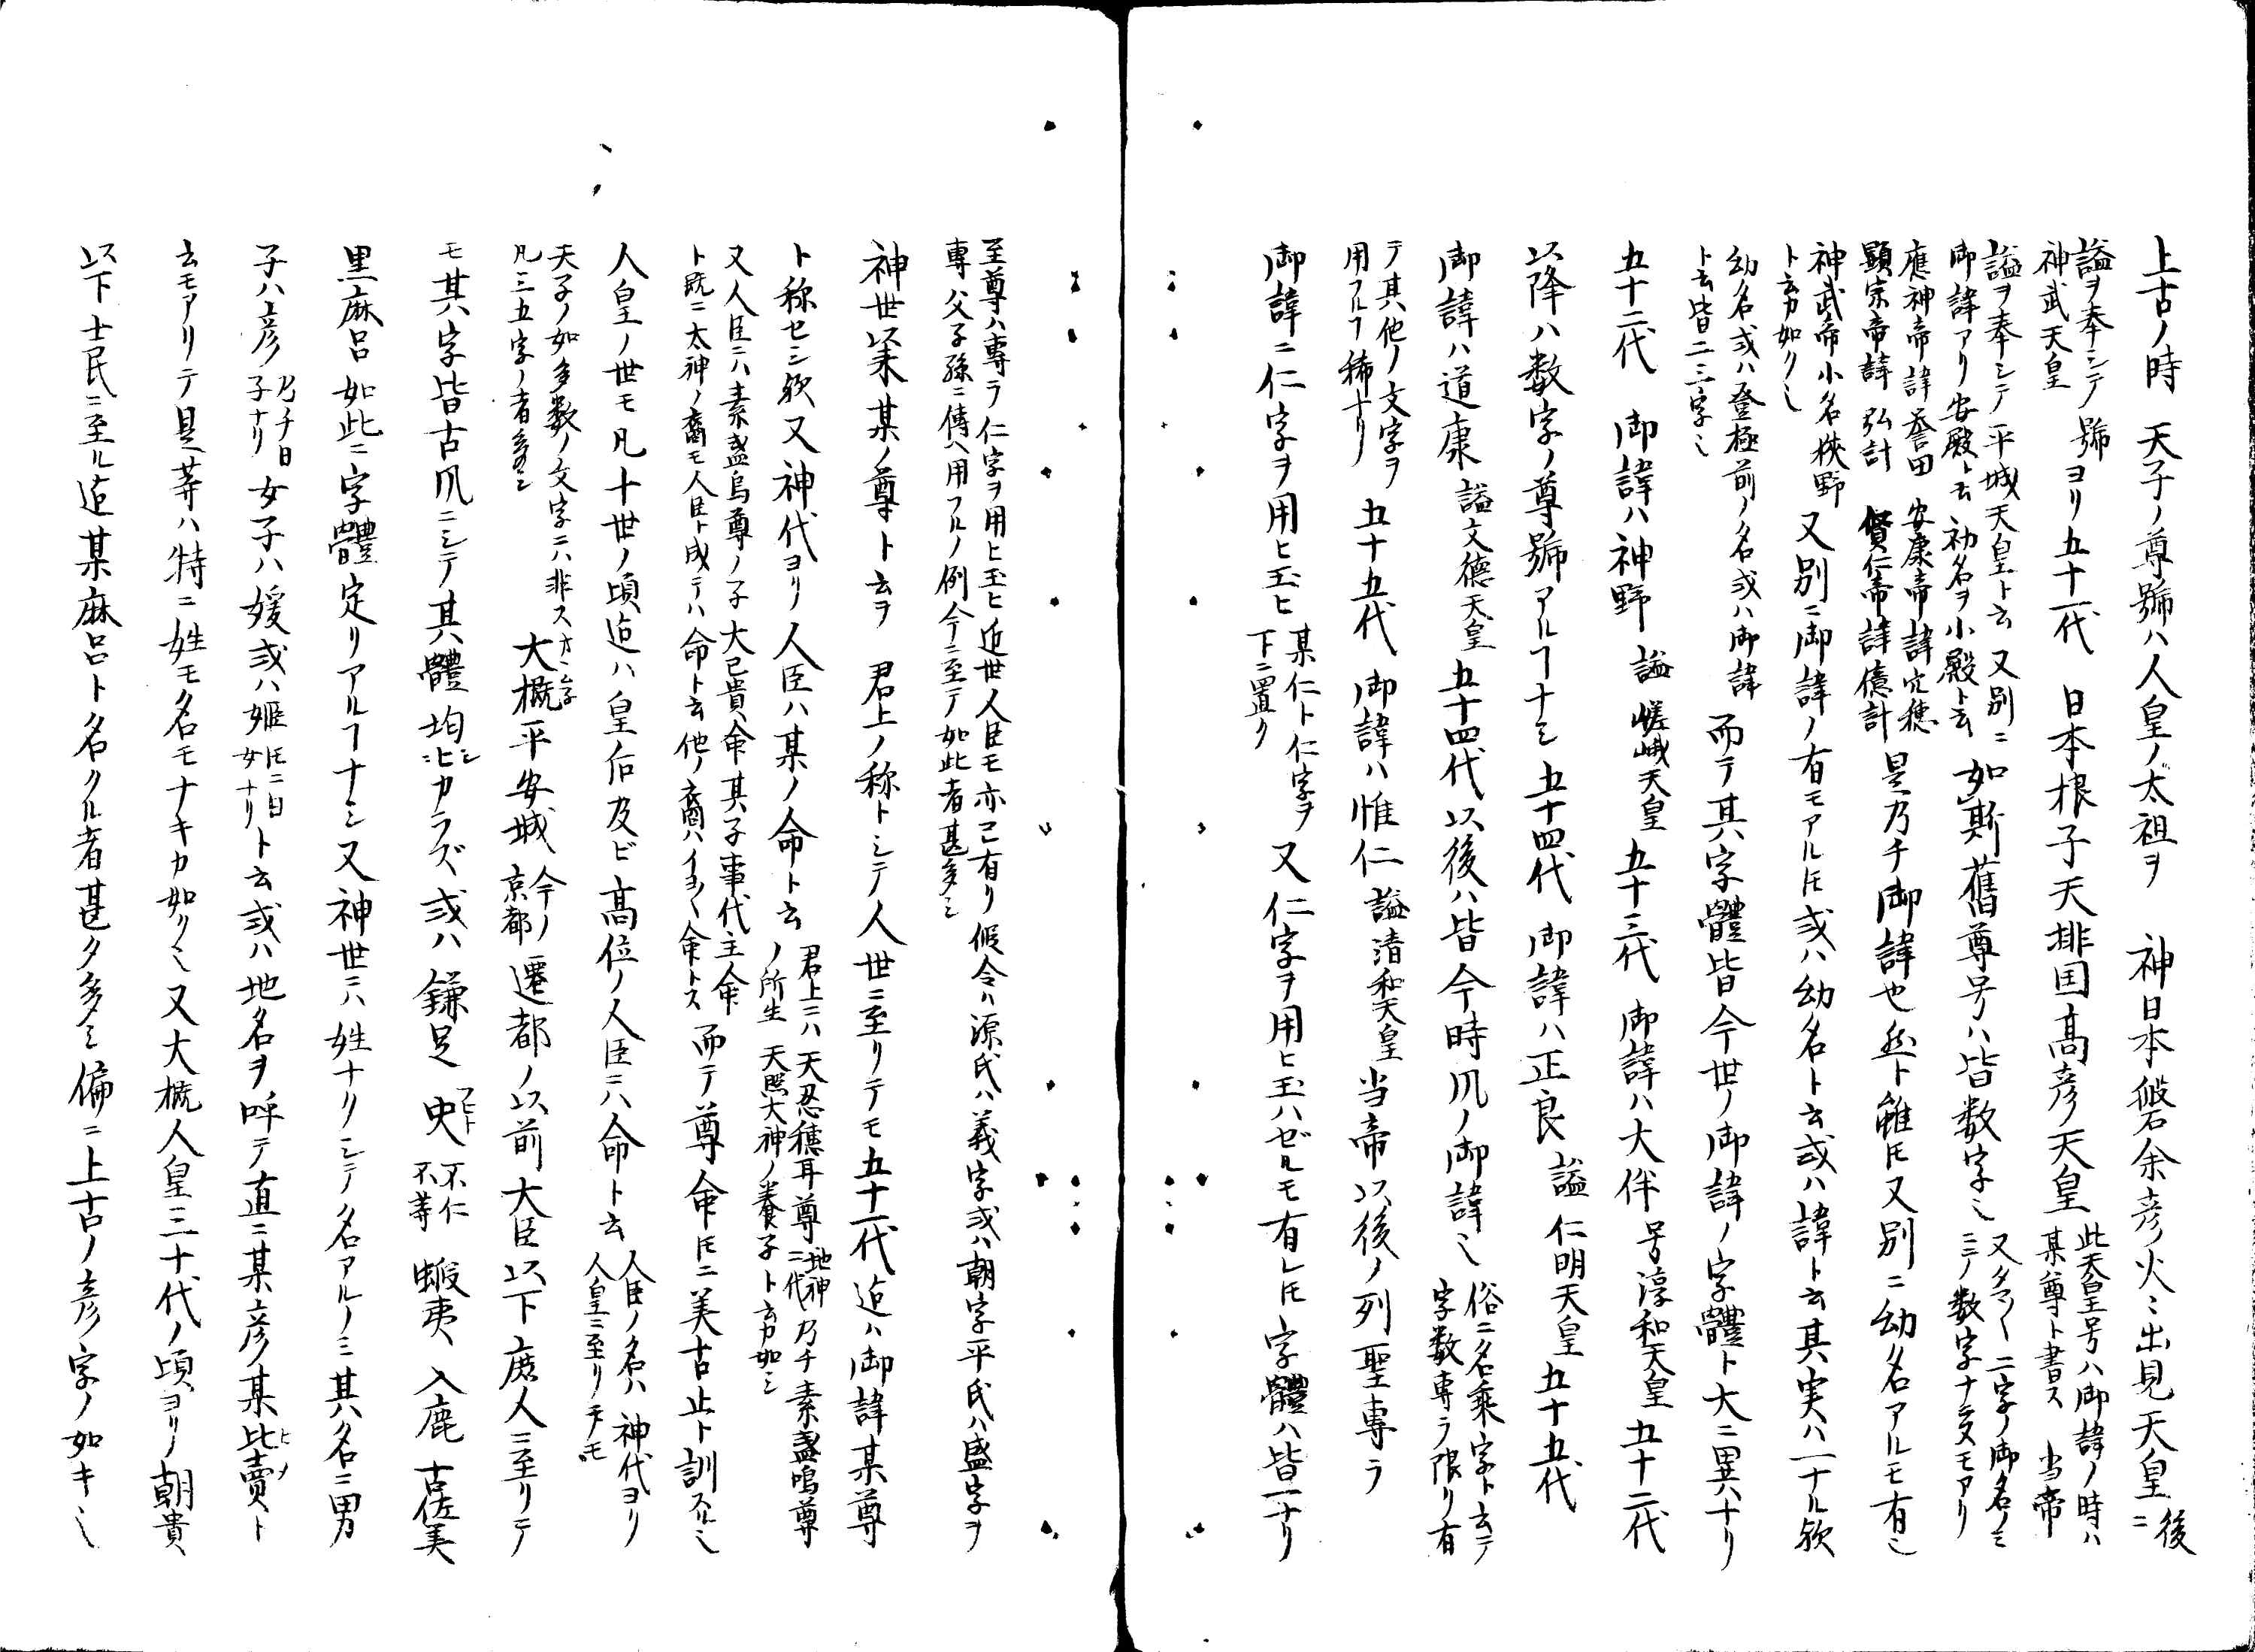 上古ノ時 天子ノ尊號ハ人皇ノ太祖ヲ 神日本磐余彦火々出見天皇 後ニ
謚ヲ奉シテ號 神武天皇 ヨリ五十一代 日本根子天排国高彦天皇 此天皇号ハ御諱ノ時ハ某尊ト書ス 当帝
謚ヲ奉シテ平城天皇ト云又別ニ御諱アリ安殿ト云初名ヲ小殿ト云 如斯舊尊号ハ皆数字ミ 又多ク二字ノ御名ノミ二三ノ数字ナ モアリ
應神帝諱誉田 安康帝諱穴穂 顕宗帝諱弘計 賢仁帝諱億計 是乃チ御諱也然ト雖𪜈又別ニ幼名アルモ有ミ
神武帝小名狹野ト云カ如クミ 又別ニ御諱ノ有モアル𪜈或ハ幼名ト云或ハ諱ト云其実ハ一ナル欤
幼名或ハ登極前ノ名或ハ御諱ト云皆二三字ミ 而テ其字體皆今世ノ御諱ノ字體ト大ニ異ナリ
五十二代 御諱ハ神野 謚嵯峨天皇 五十三代 御諱ハ大伴 号淳和天皇 五十二代
以降ハ数字ノ尊號アルヿナシ五十四代 御諱ハ正良 謚仁明天皇 五十五代
御諱ハ道康 謚文德天皇 五十四代以後ハ皆今時凡ノ御諱ミ 俗ニ名乘字ト云テ字数專ラ限リ有
テ其他ノ文字ヲ用フルヿ稀ナリ 五十五代 御諱ハ惟仁 謚清和天皇 当帝以後ノ列聖專ラ
御諱ニ仁字ヲ用ヒ玉ヒ 某仁ト仁字ヲ下ニ置ク 又仁字ヲ用ヒ玉ハゼルモ有レ𪜈字體ハ皆一ナリ
至尊ハ專ラ仁字ヲ用ヒ玉ヒ近世人臣モ亦已有リ專ハ父子孫ニ傳ヘ用フルノ例今ニ至テ如此者甚多シ 假令ハ源氏ハ義字或ハ朝字平氏ハ盛字ヲ
神世以来某ノ尊ト云ヲ 君上ノ称トシテ人世ニ至リテモ五十一代迠ハ御諱某尊
ト称セシ欤又神代ヨリ人臣ハ某ノ命ト云 君上ニハ天忍穗耳尊 地神二代 乃チ素盞嗚尊ノ所生 天照大神ノ養子ト云カ如シ
又人臣ニハ素盞烏尊ノ子大已貴命其子事代主命ト既ニ太神ノ裔モ人臣ト成テハ命ト云他ノ裔ハイヨ〱命トス 而テ尊命𪜈ニ美古止ト訓スルミ
人皇ノ世モ凡十世ノ頃迠ハ皇后及ビ高位ノ人臣ニハ命ト云 人臣ノ名ハ神代ヨリ人皇ニ至リテモ
天子ノ如多数ノ文字ニハ非ス凡三五字ノ者多シ 大概平安城 今ノ京都 遷都ノ以前大臣以下庶人ニ至リテ
モ其字皆古凡ニシテ其體均シカラズ或ハ鎌足 史 フヒト 不仁 不等 蝦夷、入鹿 古佐美
黒麻呂如此ニ字體定リアルヿナシ又神世ニハ姓ナクシテ名アルノミ其名ニ男
子ハ彦 乃チ日子ナリ 女子ハ媛或ハ姬 𪜈ニ日女ナリ ト云或ハ地名ヲ呼テ直ニ某彦某比賣ト
云モアリテ是荨ハ特ニ姓モ名モナキカ如クミ又大概人皇三十代ノ頃ヨリノ朝貴
以下士民ニ至ル迠某麻呂ト名クル者甚タ多シ偏ニ上古ノ彦字ノ如キミ